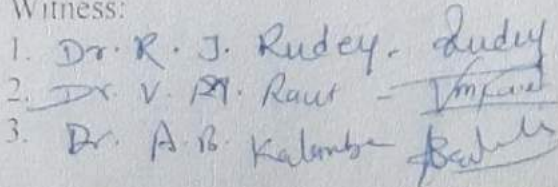 Witness:
1. Dr. R. J. Rudey. Rudey
2. Dr. V. M. Raut -
3. Dr. A. B. Kalambe